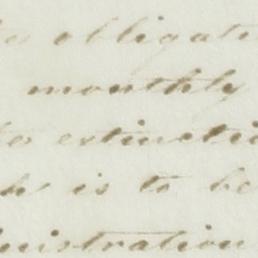 obligati
monthly
extinctio
is to be
inistration